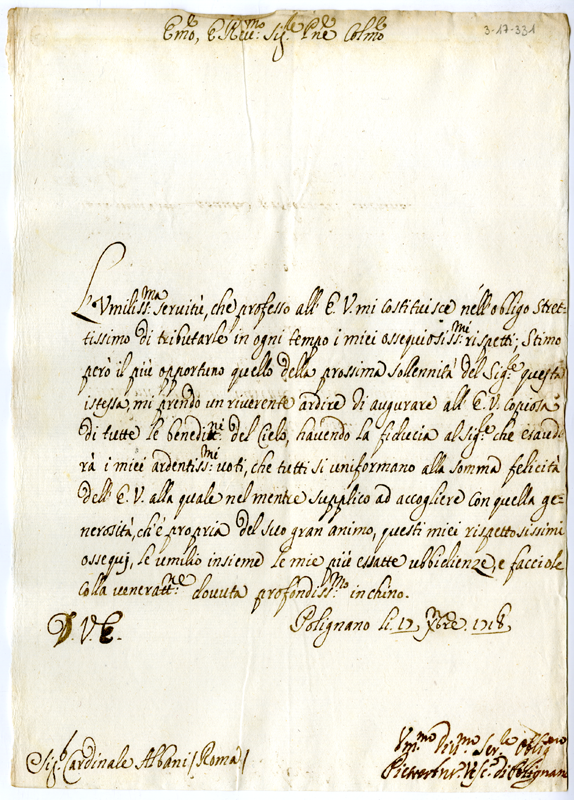 Em̃o, E Reu:mo Sig:re Pne Colmo
3-17-331
L'Vmiliss:ma seruitù, che professo all' E. V. mi costituisce nell'obligo stret-
tissimo di tributarle in ogni tempo i miei ossequiosiss:mi rispetti; Stimo
però il più opportuno quello della prossima sollennità del Sig:re questa
istessa, mi prendo un riuerente ardire di augurare all' E. V. copiosa
di tutte le benedit:ni del Cielo, hauendo la fiducia al Sig:re che esaudi
rà i miei ardentiss:mi uoti, che tutti si uniformano alla somma felicità
dell' E. V. alla quale nel mentre supplico ad accogliere con quella ge-
nerosità, ch'è propria del suo gran animo, questi miei rispettosissimi
ossequj, le umilio insieme le mie più essatte ubbidienze, e facciole
colla ueneratt:e douuta profondiss:mo inchino.
D. V. E.
Polignano li 17 Xbre 1718
Sig:r Cardinale Albani (Roma)
Vm:mo Diu:mo Ser:re Oblig:mo
Vesc: di Polignano